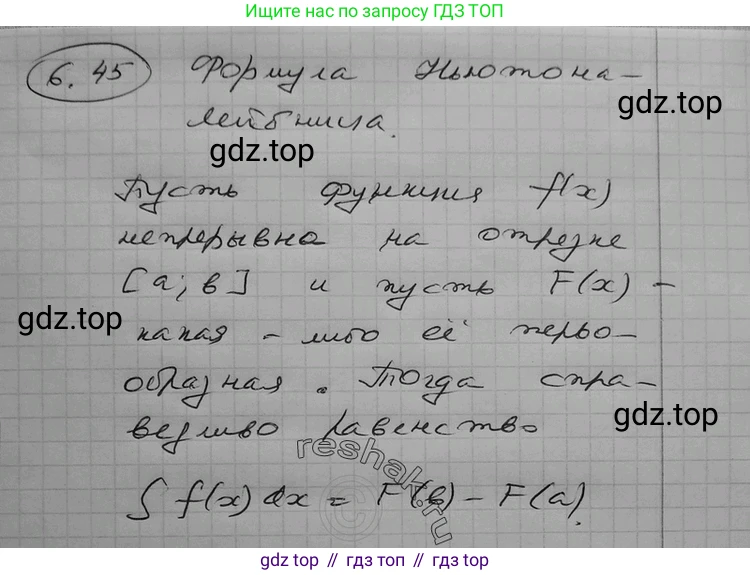 Ищите нас по запросу ГДЗ ТОП
6.45 Формула Ньютона-
Лейбница.
gdz.top
gdz.top
Пусть функция f(x)
непрерывна на отрезке
[a; в] и пусть F(x) -
gdz.top
какая - либо её перво-
образная. Тогда спра-
gdz.top
ведливо равенство
reshak.ru
∫ f(x) dx = F(в) - F(a).
gdz top // гдз топ // gdz top